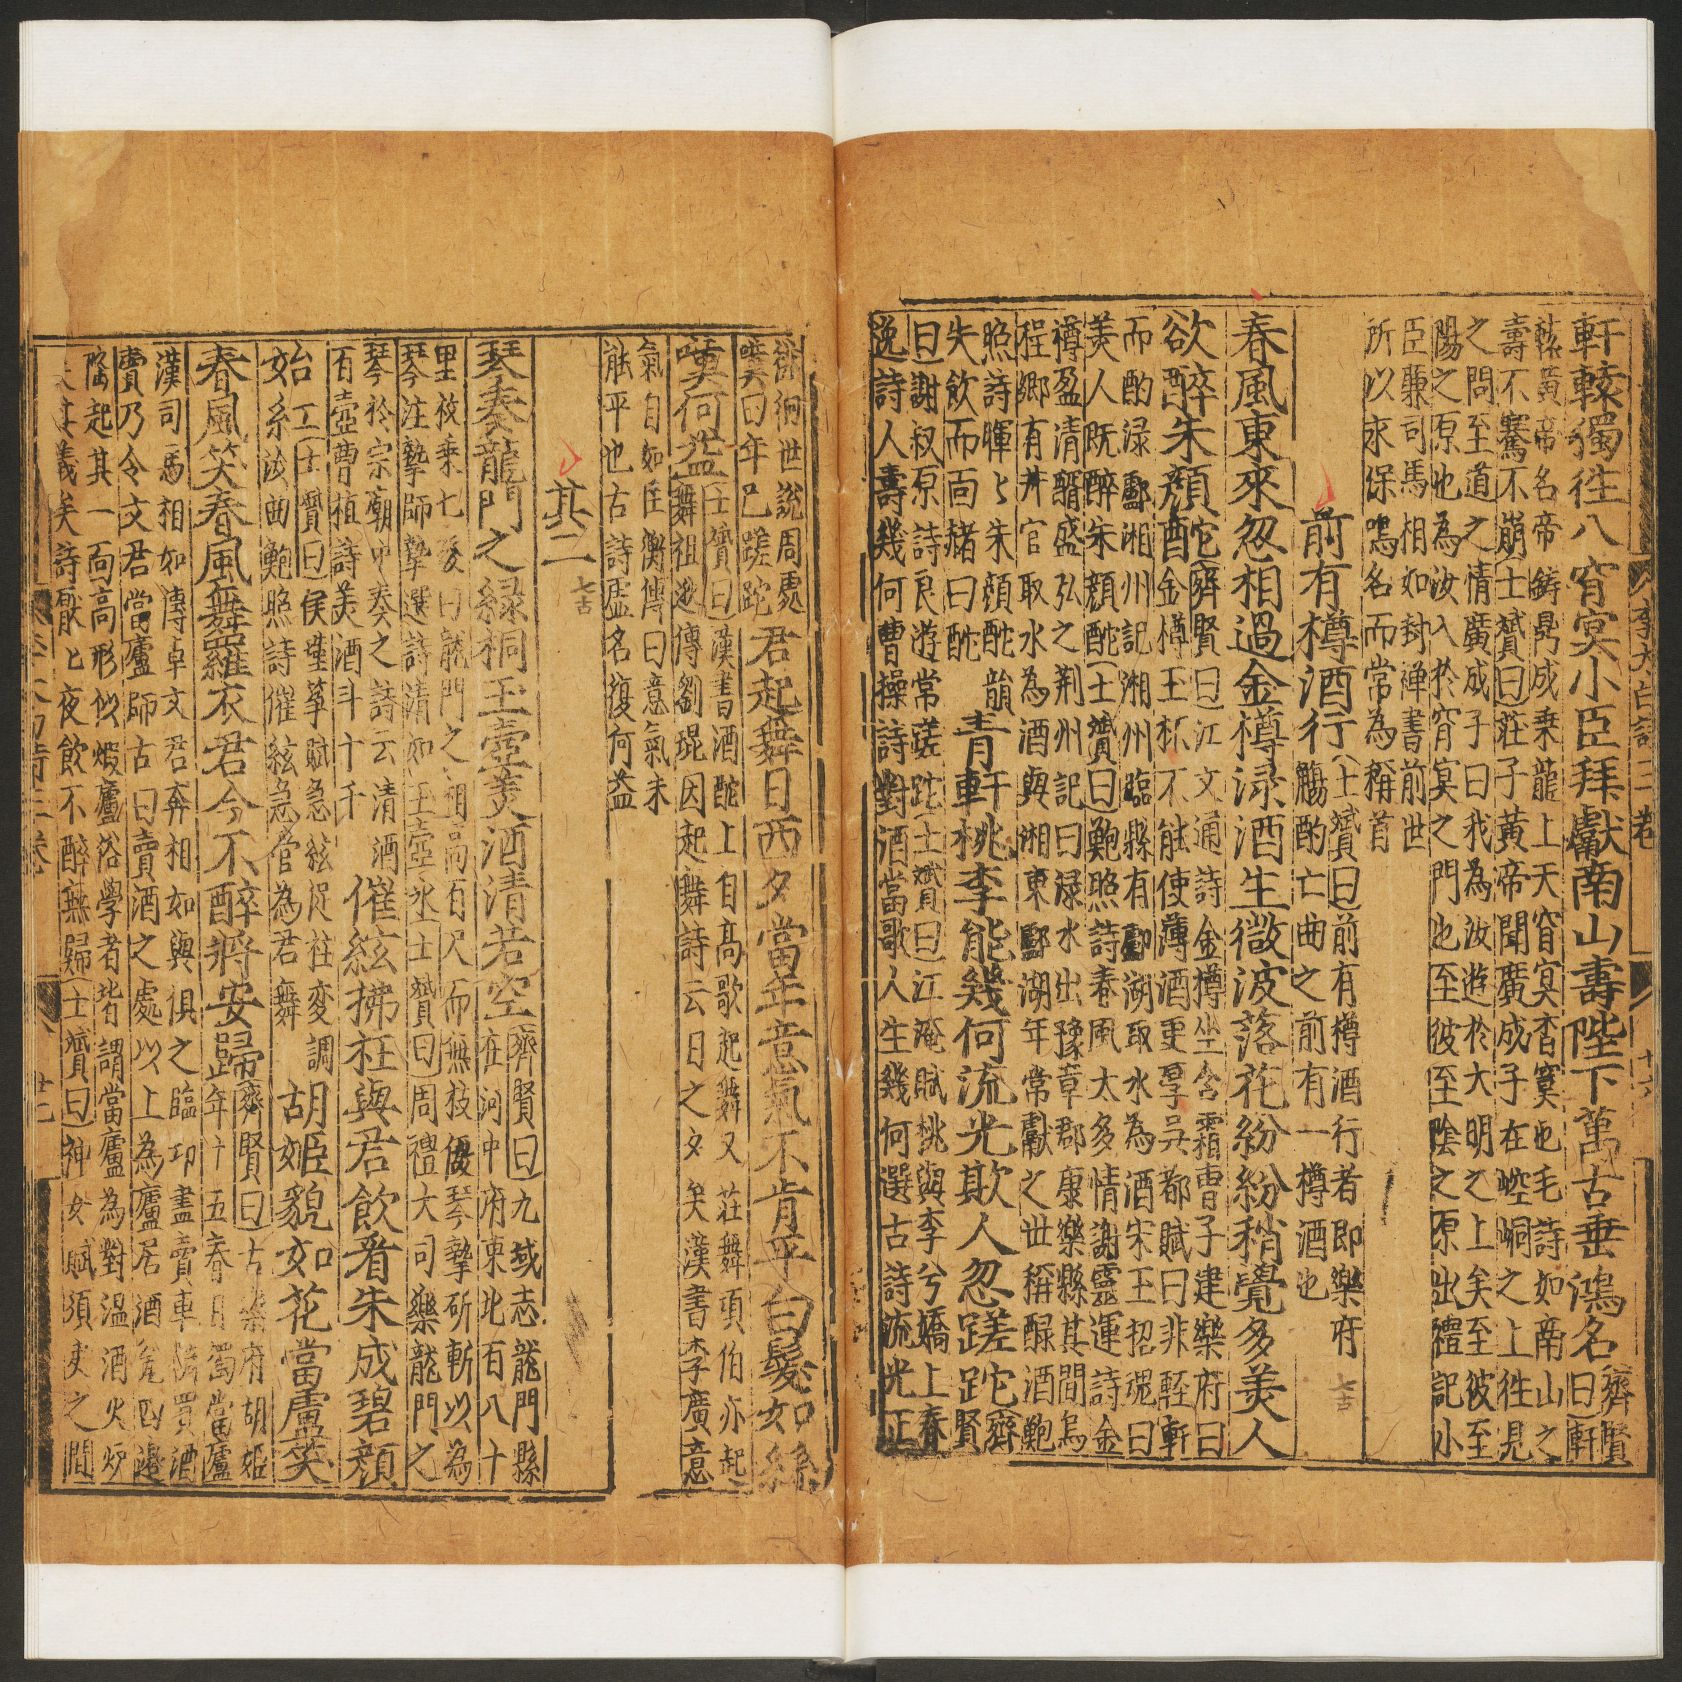 李太白詩三卷
十六
軒轅獨往入窅冥小臣拜獻南山壽陛下萬古垂鴻名齊賢曰軒
轅黃帝名帝鑄鼎成乘龍上天窅冥杳寞也毛詩如南山之
壽不騫不崩士贇曰莊子黃帝聞廣成子在崆峒之上徃見
之問至道之情廣成子曰我為汝遊於大明之上矣至彼至
陽之原也為汝入於窅冥之門也至彼至陰之原出禮記小
臣蕪司馬相如封禪書前世
所以求保鴻名而常為稱首
前有樽酒行士贇曰前有樽酒行者即樂府
觴酌亡曲之前有一樽酒也
七古
春風東來忽相過金樽淥酒生微波落花紛紛稍覺多美人
欲醉朱顏酡齊賢曰江文通詩金樽坐含霜曹子建樂府曰
金樽玉杯不能使薄酒更厚吳都賦曰非輕軒
而酌淥酃湘州記湘州臨縣有酃湖取水為酒宋玉招魂曰
美人既醉朱顏酡士贇曰鮑照詩春風太多情謝靈運詩金
樽盈清醑盛弘之荆州記曰淥水出豫章郡康樂縣其間烏
程鄉有井官取水為酒與湘東酃湖年常獻之世稱醁酒鮑
照詩暉匕朱顏酡韻
失飲而面赭曰酡
青軒桃李能幾何流光欺人忽蹉跎齊賢
曰謝叔原詩良遊常蹉跎士贇曰江淹賦桃與李兮嬌上春
逸詩人壽幾何曹操詩對酒當歌人生幾何選古詩流光正
徘徊世說周處
嘆曰年已蹉跎
君起舞日西夕當年意氣不肯平白髮如絲
嘆何益士贇曰漢書酒酣上自高歌起舞又莊舞項伯亦起
舞祖逖傳劉琨因起舞詩云日之夕矣漢書李廣意
氣自如臣衡傳曰意氣未
能平也古詩虛名復何益
其二
七古
琴奏龍門之緑桐玉壺美酒清若空齊賢曰九域志龍門縣
在河中府東北百八十
里枚乘七發曰龍門之桐高百尺而無枝優琴摯斫斬以為
琴注摯師摯選詩清如玉壺氷士贇曰周禮大司樂龍門之
琴於宗廟中奏之詩云清酒
百壺曹植詩美酒斗十千
催絃拂柱與君飲看朱成碧顏
始紅士贇曰侯瑾箏賦急絃促柱変調
如糸法曲鮑照詩催絃急管為君舞
胡姬貌如花當壚笑
春風笑春風舞羅衣君今不醉將安歸齊賢曰古樂府胡姬
年十五春日獨當壚
漢司馬相如傳卓文君奔相如與俱之臨卭盡賣車騎買酒
賣乃令文君當壚師古曰賣酒之處以上為壚居酒瓮四邊
隆起其一面高形似煅壚俗學者皆謂當壚為對温酒火炉
失其義矣詩厭匕夜飲不醉無歸士贇曰神女賦須臾之間
李太白詩三卷
廿七